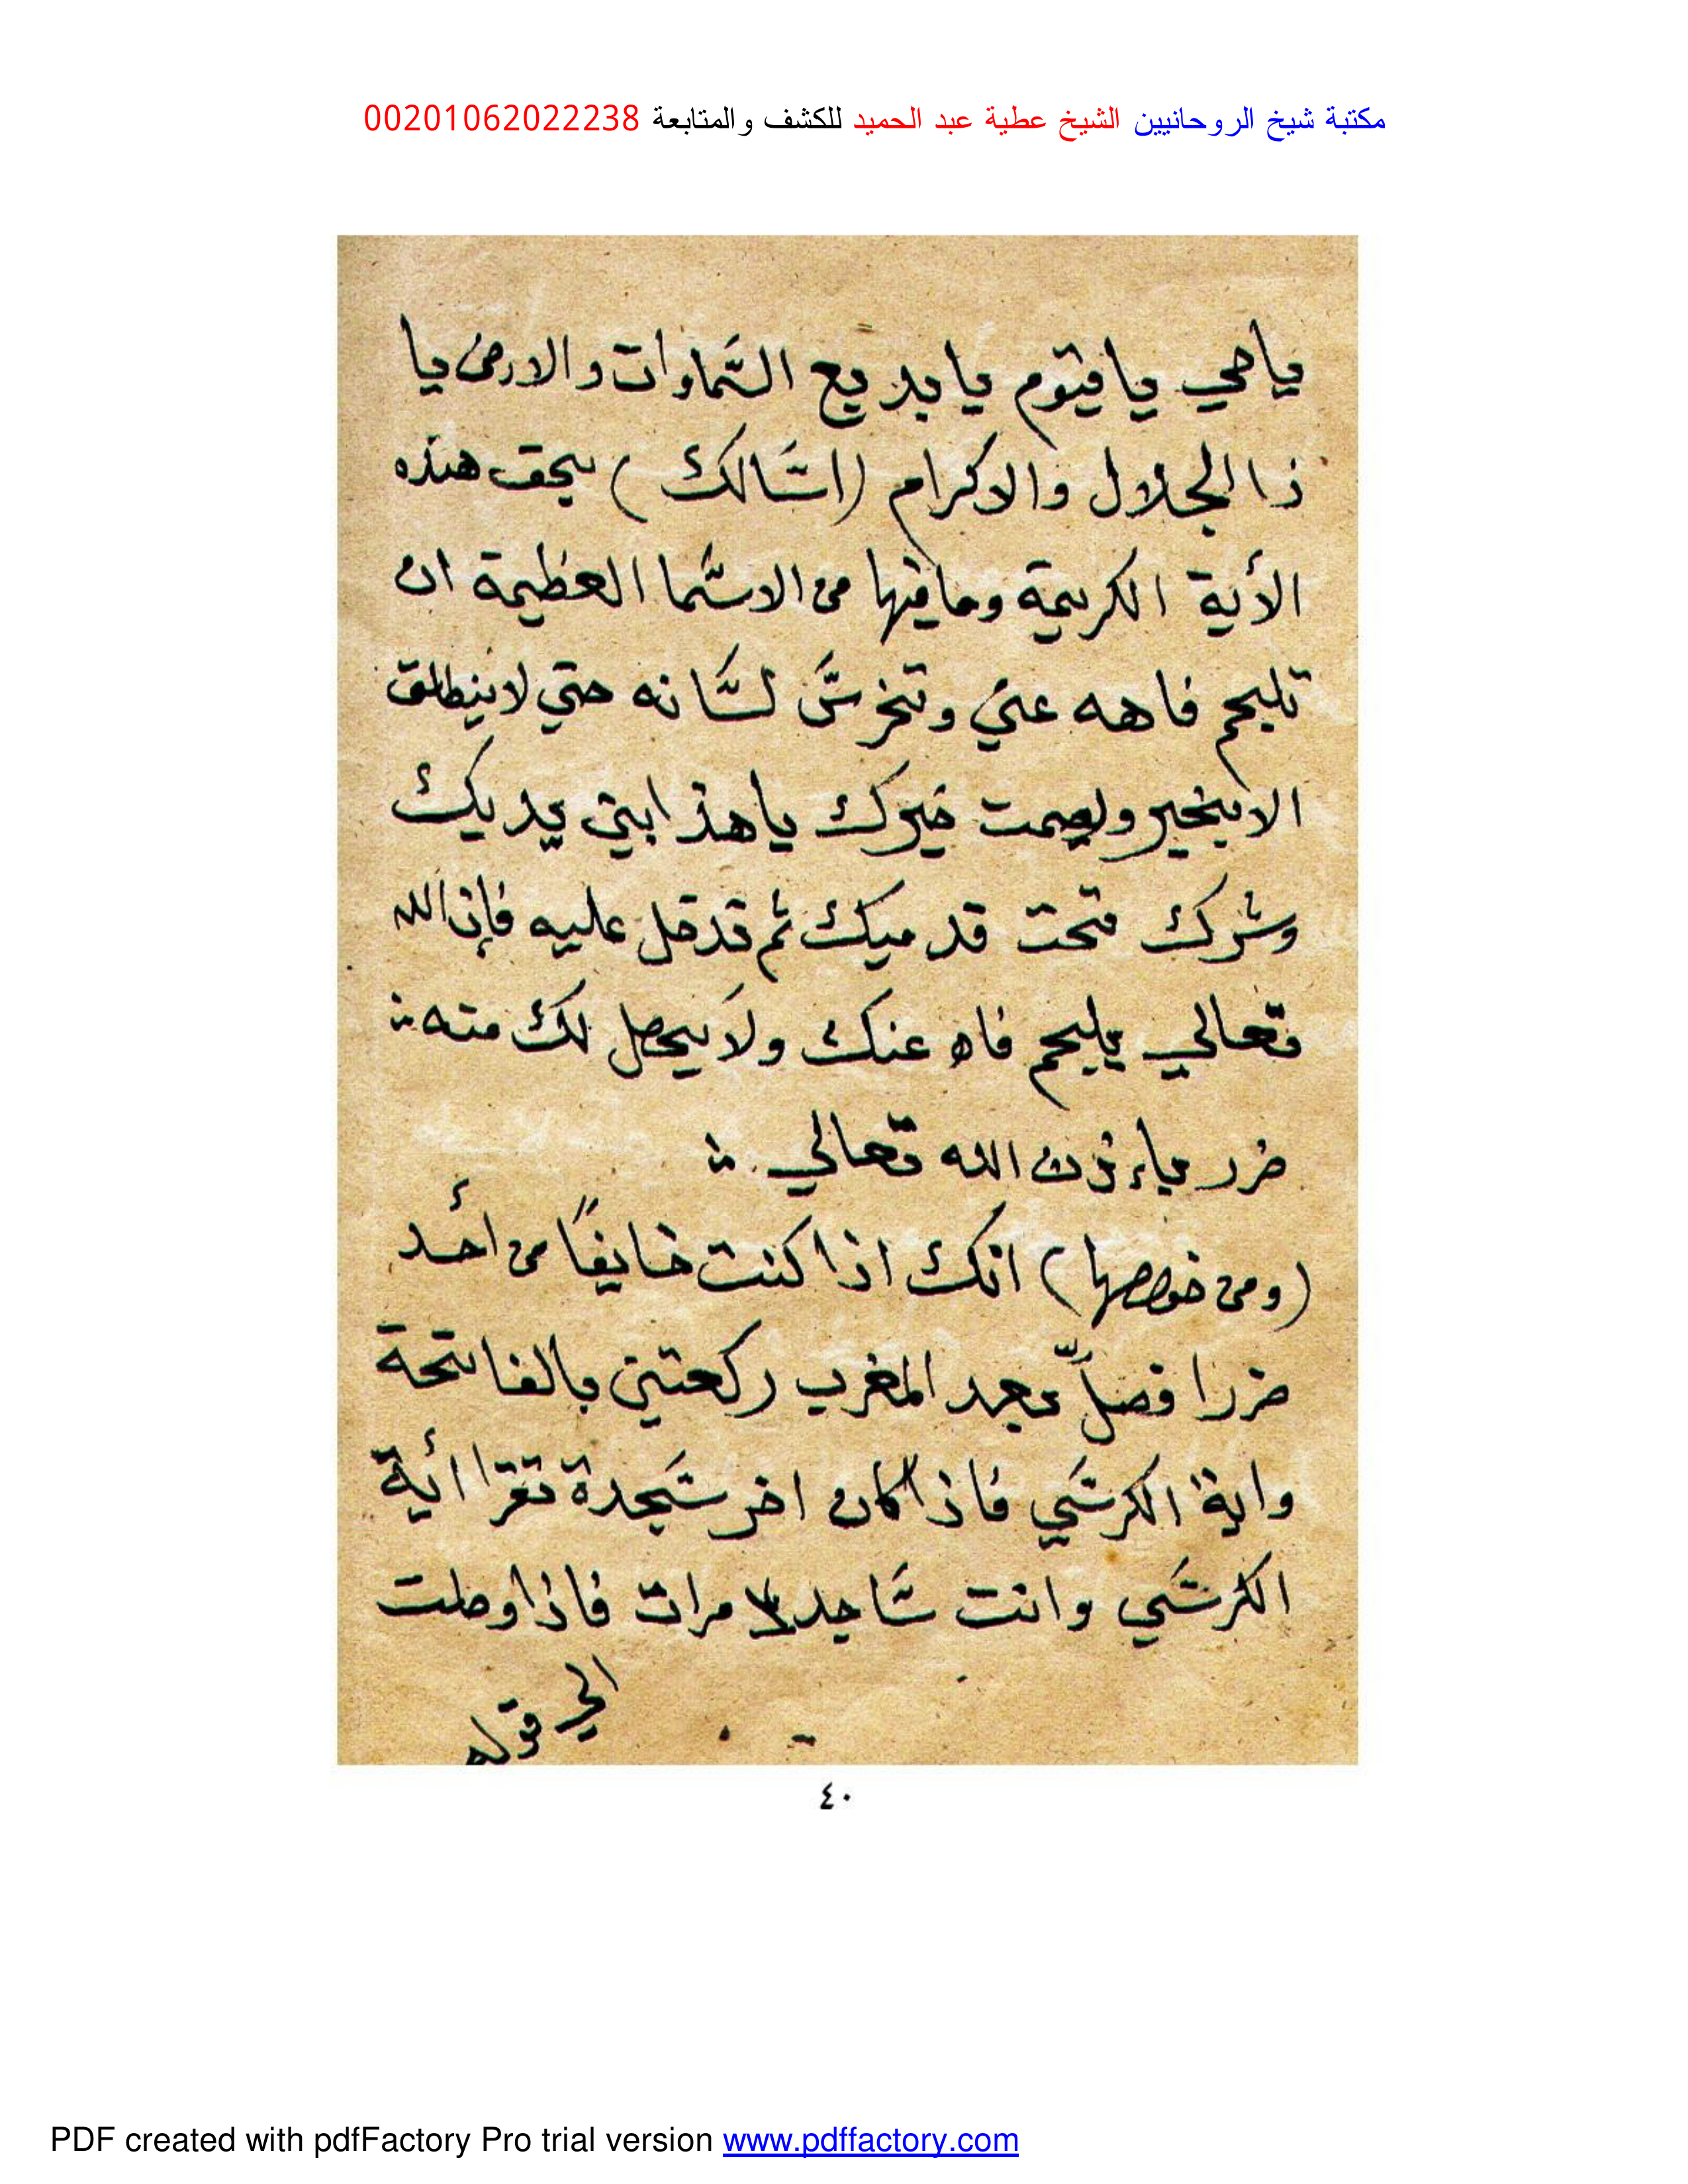 مكتبة شيخ الروحانيين الشيخ عطية عبد الحميد للكشف والمتابعة 00201062022238
ياحي يا قيّوم يا بديع السَّماوات والارض يا
ذا الجلال والاكرام (اسَّالك) بحق هذه
الأية الكريمة وما فيها من الاسَّما العظيمة ان
تلجم فاهه عني وتخرسَّ لسَّانه حتي لا ينطلق
الا بخير ويصمت خيرك يا هذا بين يديك
وشرك تحت قدميك ثم قدخل عليه فإن الله
تعالي يلجم فاه عنك ولا يحصل لك منه
ضرر باءذن الله تعالي
(ومن خوصها) انك اذا كنت خايفًا من احد
ضررا فصلّ بعد المغرب ركعتين بالفاتحة
واية الكرسَّي فاذا كان اخر سَّجدة تقرا أية
الكرسَّي وانت سَّاجد مرات فاذا وصلت
الي قوله
٤٠
PDF created with pdfFactory Pro trial version www.pdffactory.com